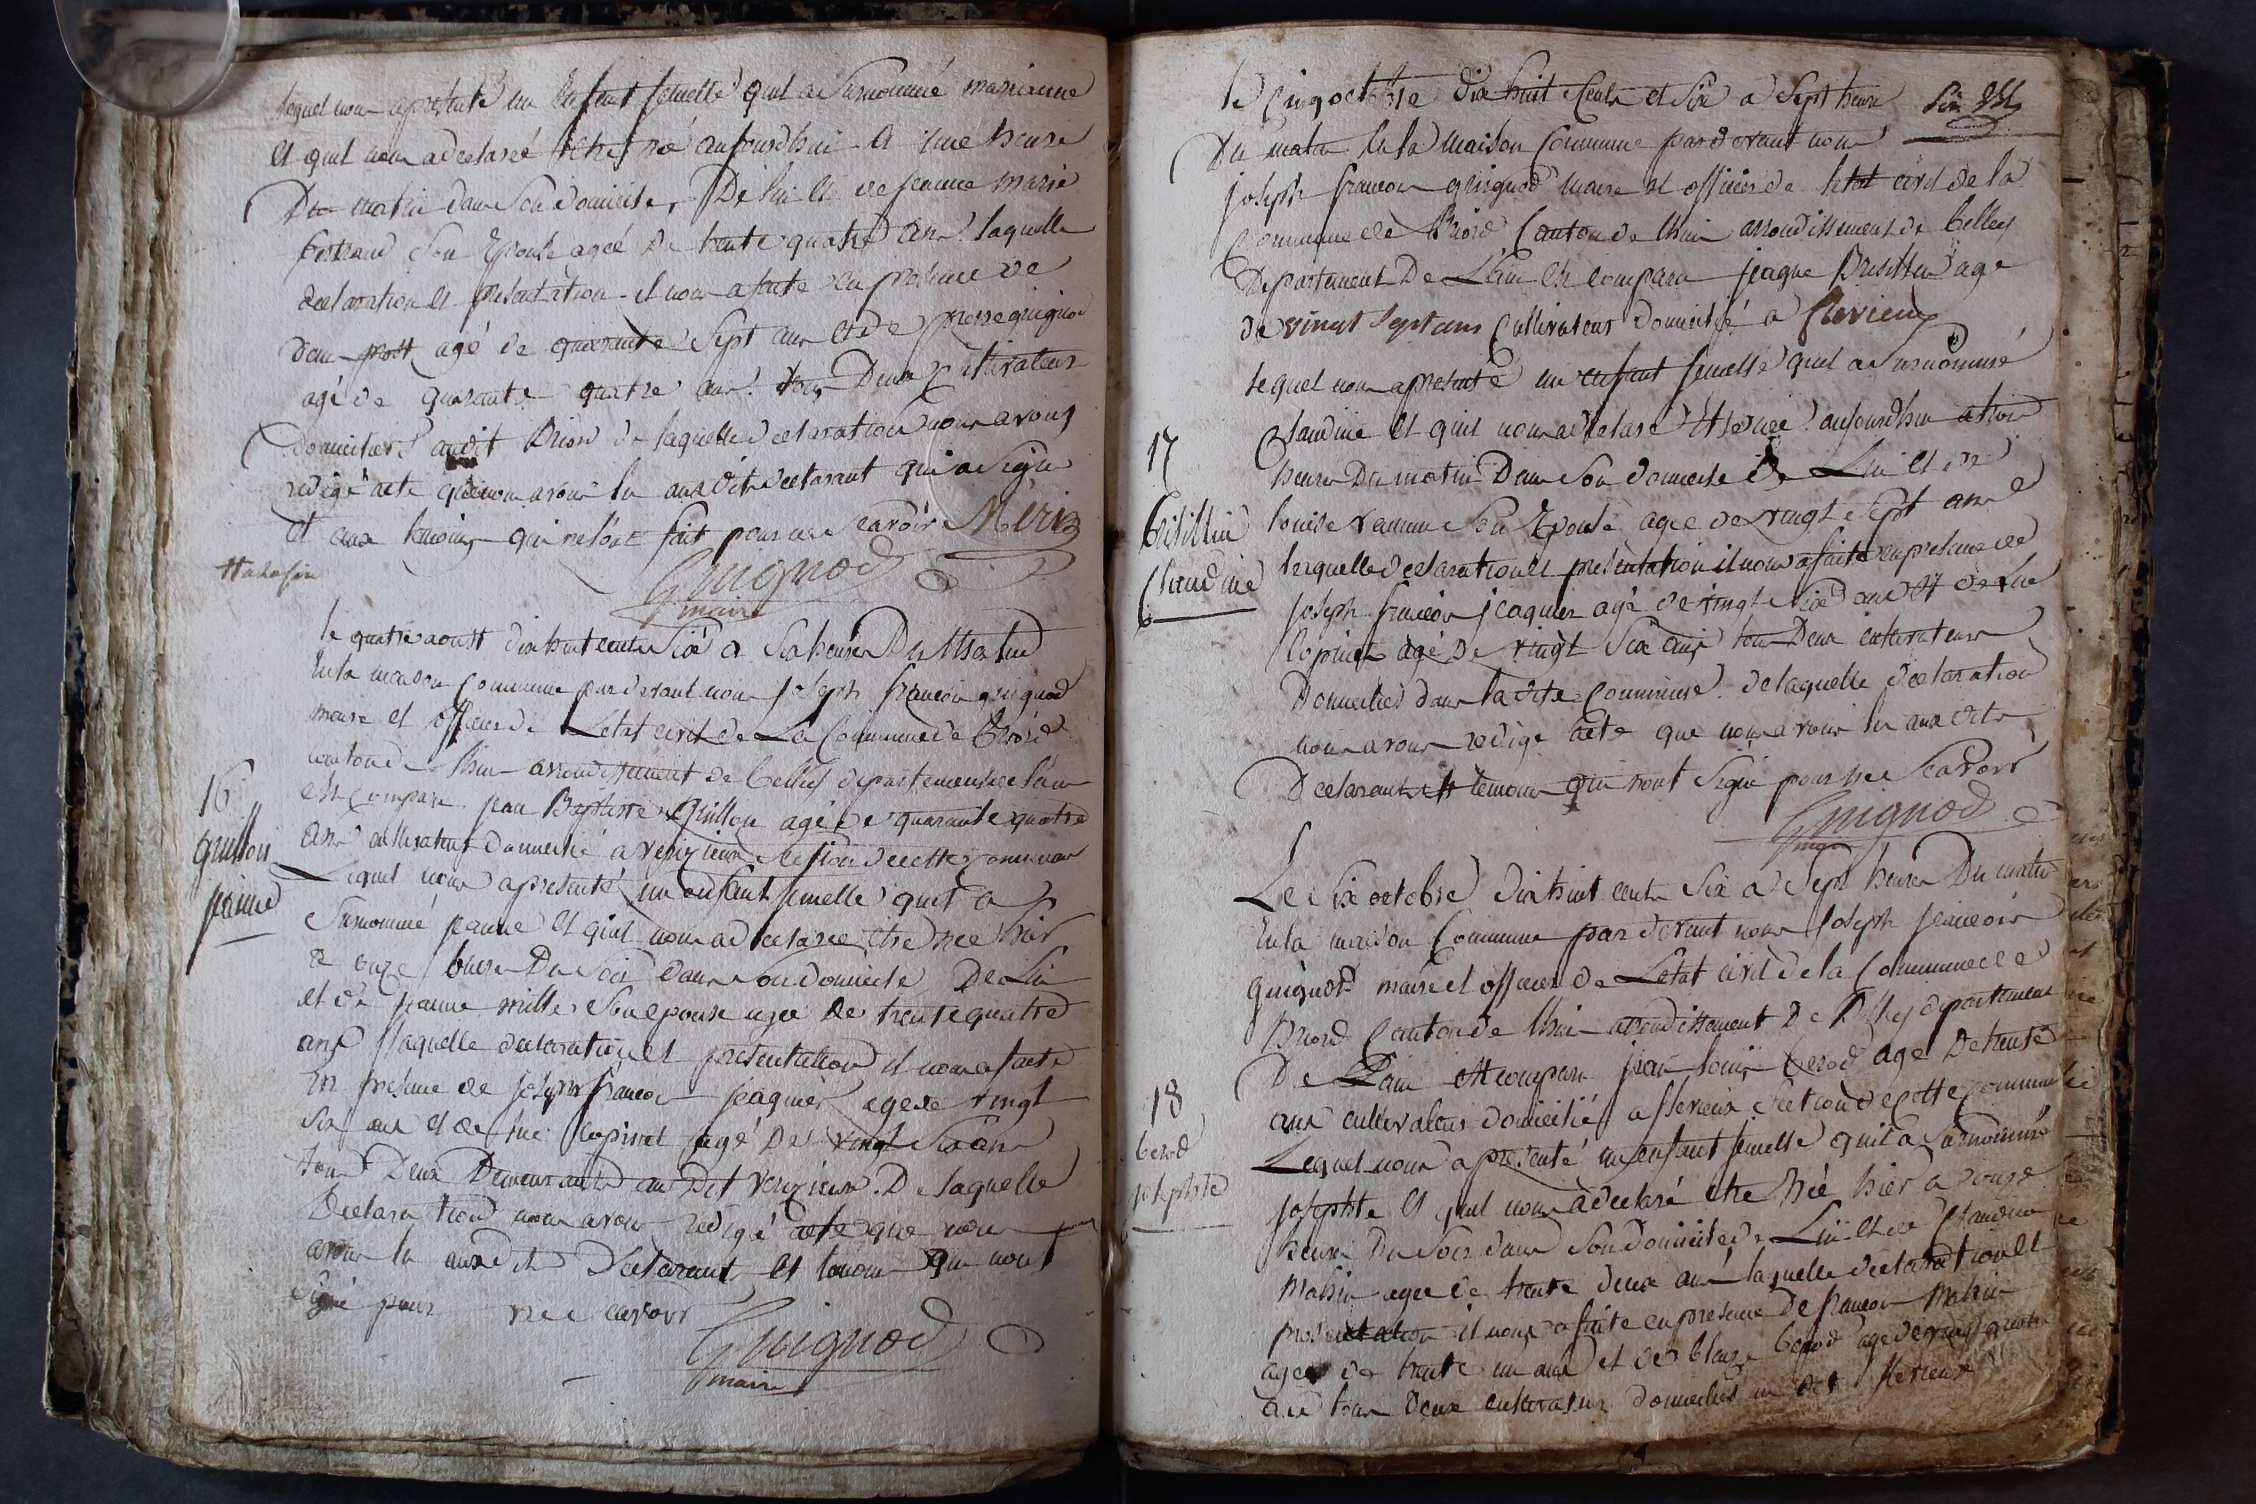 lequel nous apresenté un Enfant femelle quil a Surnommé marianne
Et quil nous adeclaré Etre né aujourdhui a une heure
Du matin dans Son domicile, De lui Et de jeanne marie
bertrand Son Epouse ageé De trente quatre ans. laquelle
declaration Et presentation il nous a faite en presence de
agé de quarante Sept ans et de pierre guignod
agé de quarante quatre ans. tous Deux Cultivateurs
Domicilies audit Briord de laquelle declaration nous avons
redigé acte que nous avons lu aux dits declarant qui a Signé
et aux temoins qui ne lont fait pour ne Scavoir
Guignod
maire
le quatre aoust dix huit cents Six a Six heures Du Matin
En la maison Commune par devant nous joseph francois guignod
maire et officier de Letat civil de La Commune de Briord
canton de lhuis arrondissement de belley departement de lain
Est Comparu jean Baptiste Guillon agé de quarante quatre
ans cultivateur Domicilié a verizieux Section de cette Commune
16
guillon
jeanne
Lequel nous apresenté un enfant femelle quil a
Surnommé jeanne Et quil nous adeclaree etre nee hier
a onze heures Du Soir dans Son domicile De Lui
et de jeanne mille Son epouse agee De trente quatre
ans laquelle declaration Et presentation il nous a faite
En presence de joseph francois jeaquier agé de vingt
Six ans et de luc lopinet agé De vingt Six ans
tous Deux Demeurants au Dit verizieux. De laquelle
Declaration nous avons redigé acte que nous
avons lu aux dit Declarant Et temoins qui nont
Signé pour ne Scavoir
Guignod
maire
le Cinq octobre Dix huit Cents et Six a Sept heures
Du matin En la Maison Commune par devant nous
joseph francois guignod maire et officier de letat civil de la
Commune de Briord Canton de lhuis arrondissement de belley
Departement De Lain Est comparu jeaque Brisillin age
de vingt Sept ans Cultivateur Domicilié a flevieux
lequel nous apresenté un enfant femelle quil a Surnommé
Claudine Et quil nous adeclaré Etre née aujourdhui a trois
heures Du matin Dans Son domicile De Lui Et de
17
Brisillin
Claudine
louise Son Epouse agee de vingt Sept ans
laquelle declaration Et presentation il nous a faite en presence de
joseph francois jeaquier agé de vingt Six ans Et de luc
lopinet agé De vingt Six ans tous Deux cultivateurs
Domicilies dans la dite Commune. de laquelle declaration
nous avons redigé acte que nous avons lu aux dits
Declarant Et temoins qui nont Signé pour ne Scavoir
Guignod
maire
Le Six octobre Dix huit cents Six a Sept heures Du matin
En la maison Commune par devant nous joseph francois
guignod maire et officier de Letat civil de la Commune de
Briord Canton de lhuis arrondissement De Belley departement
De Lain Est comparu jean louis berod age De trente
ans cultivateur domicilié a flevieux Section de Cette Commune
18
berod
josephte
Lequel nous apresenté un enfant femelle quil a Surnommé
josephte Et quil nous adeclaré etre née hier a onze
heures Du Soir dans Son domicile de Lui Et de Claudine
Mathin agee de trente deux ans laquelle declaration Et
presentation il nous a faite en presence De francois Mathin
agé de trente un ans et de blaize berod age de vingt quatre
ans tous Deux cultivateurs domicilies au dit flevieux